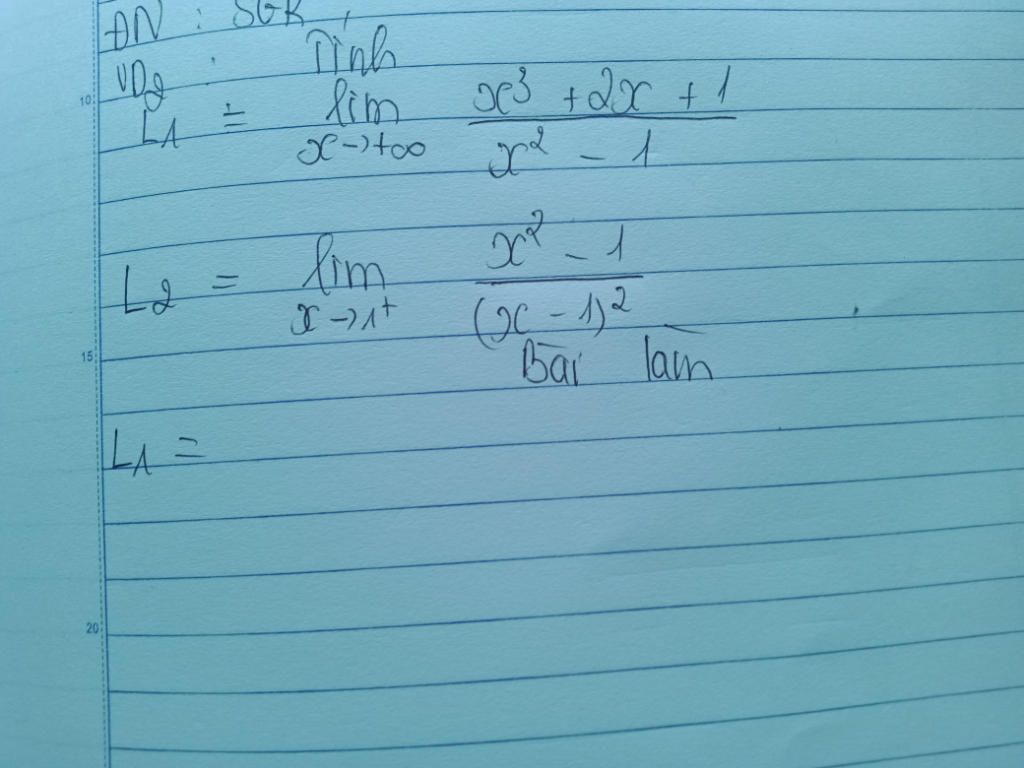 10
ĐN : SGK,
VD2 : Tính
L1 = lim x→+∞ (x³ + 2x + 1)/(x² - 1)
L2 = lim x→1⁺ (x² - 1)/(x - 1)²
15
Bài làm
L1 =
20